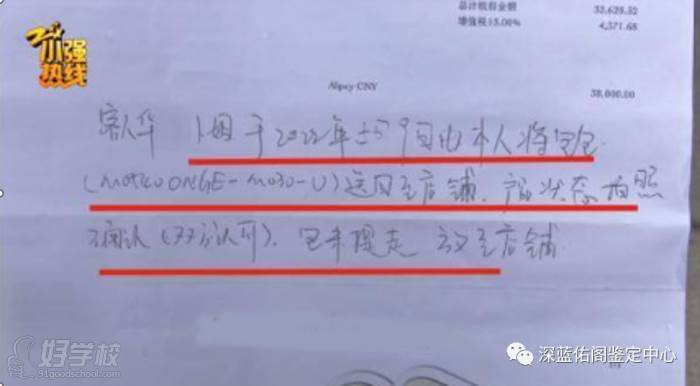 总计税前金额 33,628.32
增值税13.00% 4,371.68
小强热线
Alipay CNY 38,000.00
客人华 小姐于2022年 月9日由本人将包包
(M0T40ONGE-M030-U)送回至店铺、产品状态拍照
确认(双方认可)、包未提走 放至店铺
好学校
91goodschool.com
深蓝佑阁鉴定中心